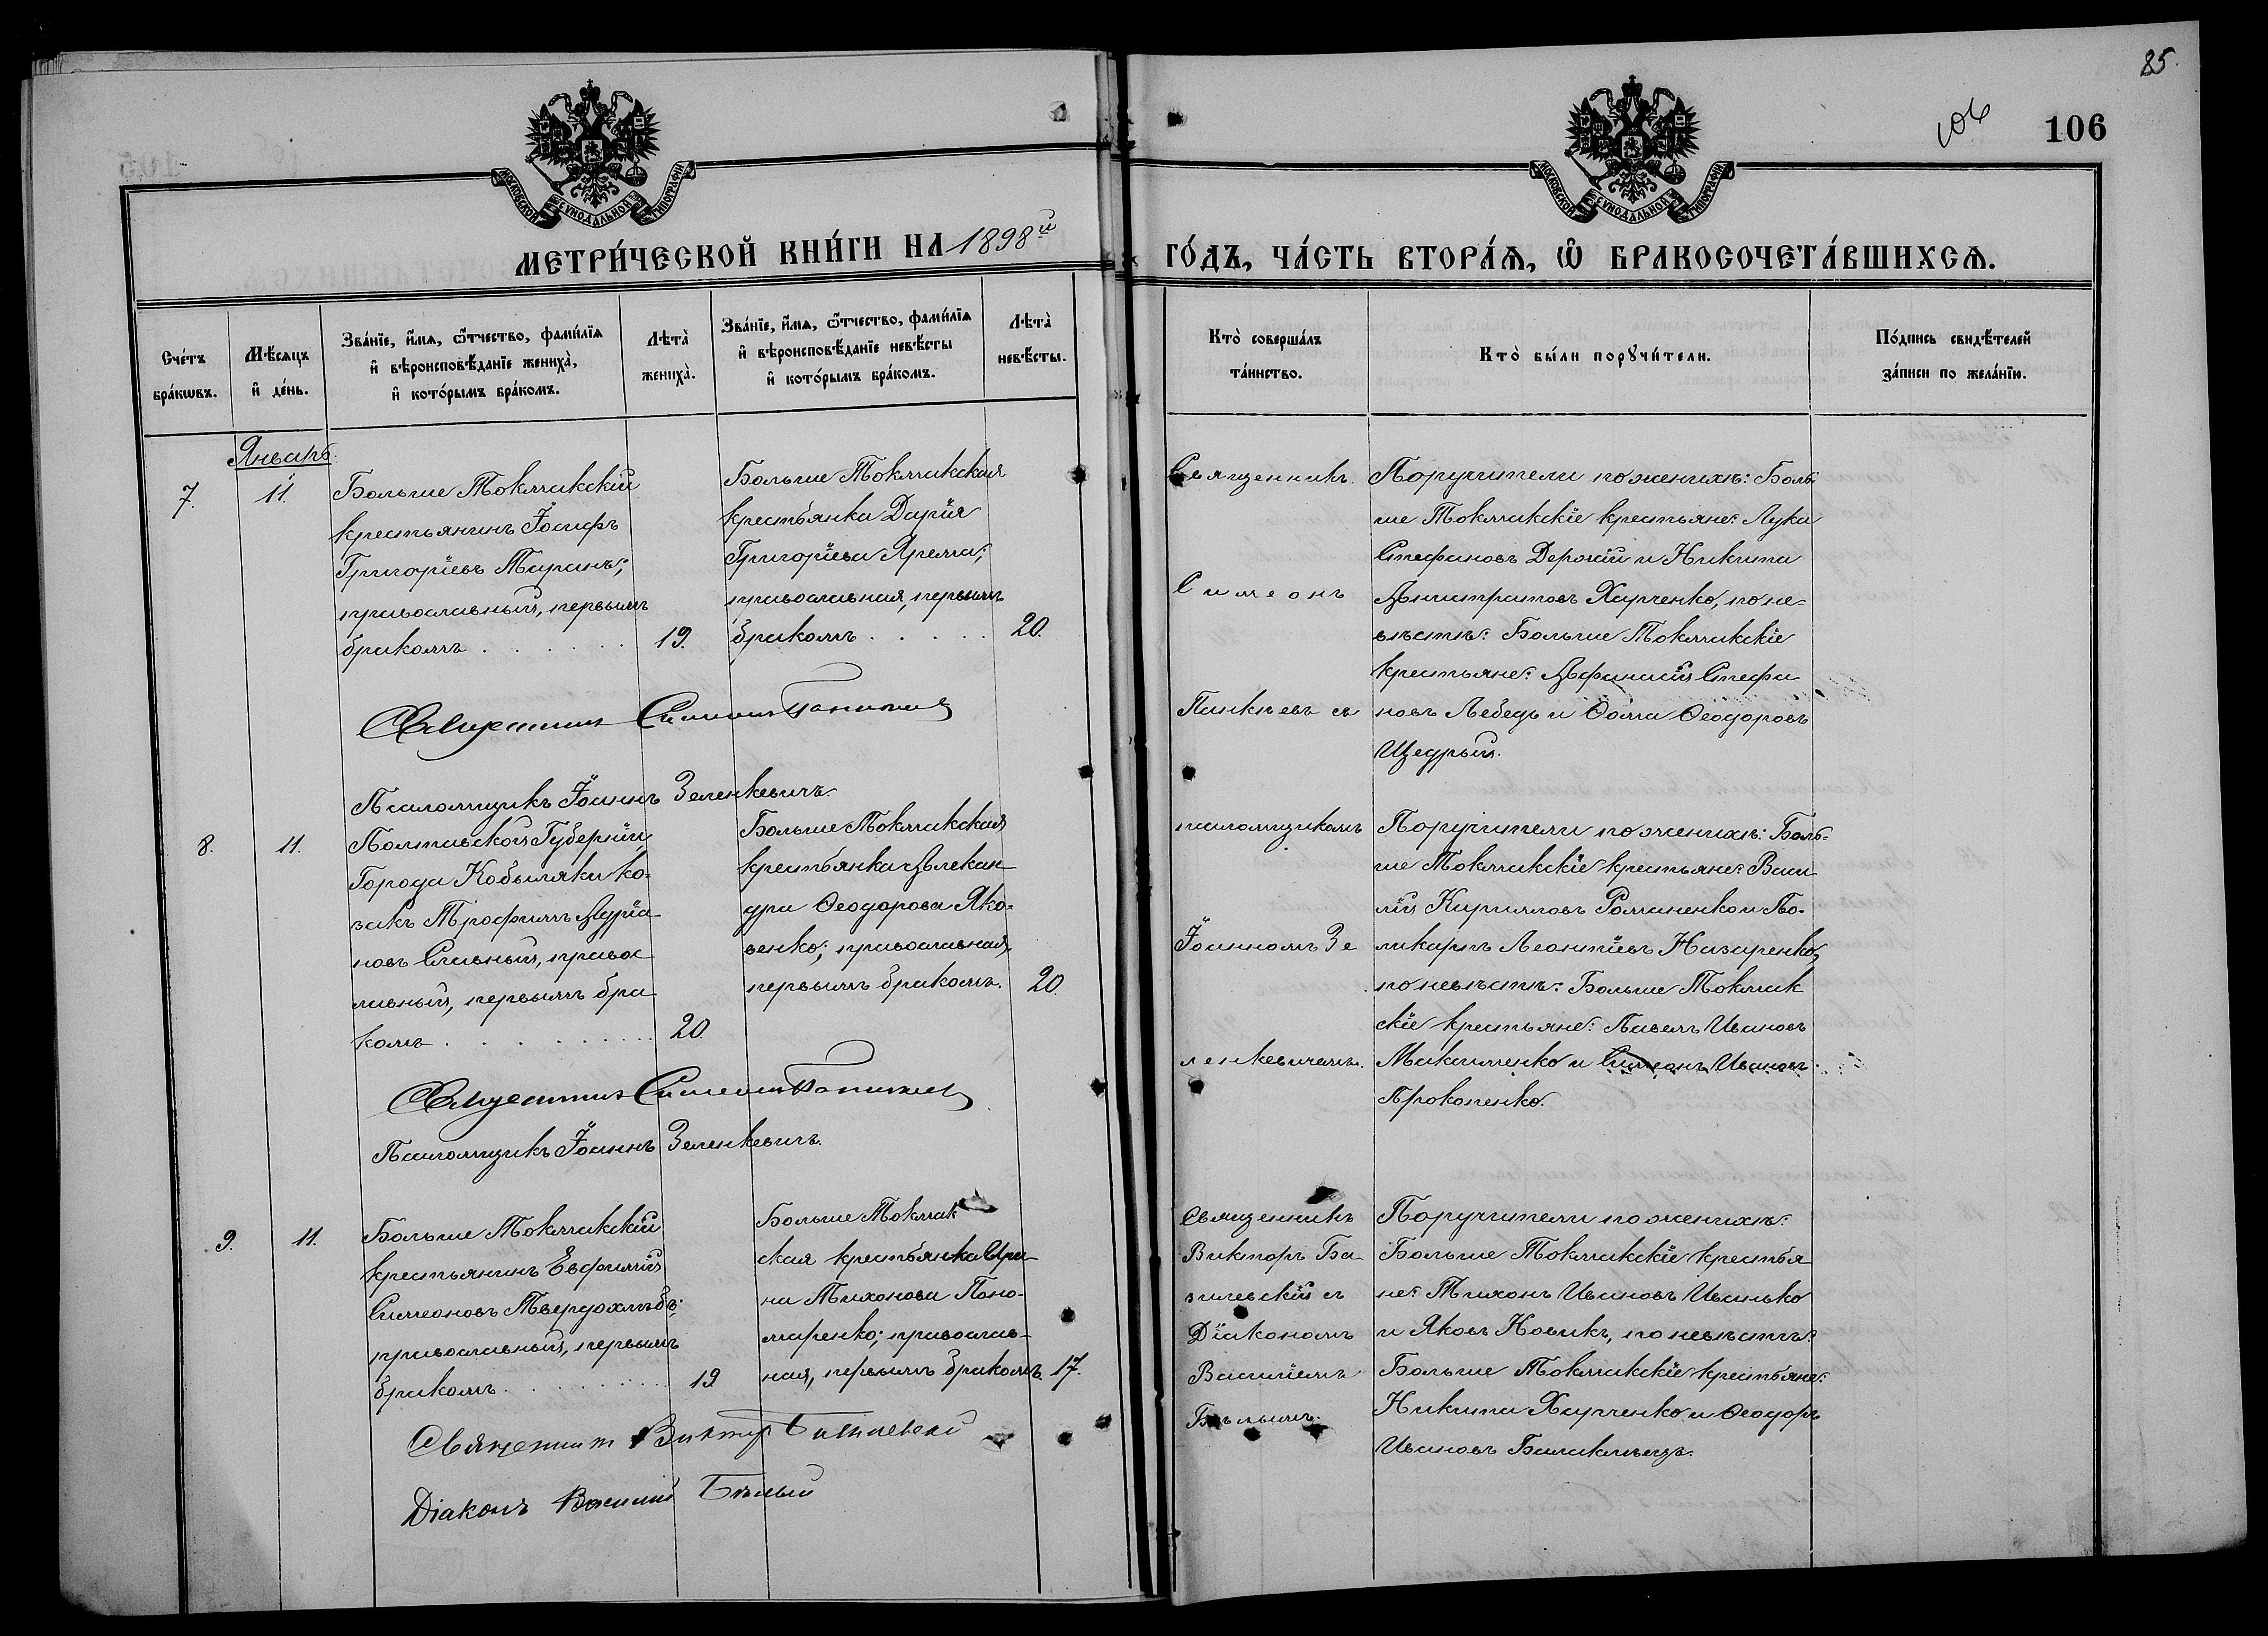 85.
106
106
МОСКОВСКОЙ СУНОДАЛЬНОЙ ТИПОГРАФІИ
МОСКОВСКОЙ СУНОДАЛЬНОЙ ТИПОГРАФІИ
МЕТРИ́ЧЕСКОЙ КНИ́ГИ НА 1898й
ГО́ДЪ, ЧА́СТЬ ВТОРА́Ѧ, Ѽ БРАКОСОЧЕТА́ВШИХСѦ.
Сче́тъ
бра́кѡвъ.
Мѣ́сѧцъ
и҆ де́нь.
Зва́нїе, и҆́мѧ, ѻ҆́тчество, фами́лїѧ
и҆ вѣроисповѣ́данїе жениха̀,
и҆ кото́рымъ бра́комъ.
Лѣта̀
жениха̀.
Зва́нїе, и҆́мѧ, ѻ҆́тчество, фами́лїѧ
и҆ вѣроисповѣ́данїе невѣ́сты
и҆ кото́рымъ бра́комъ.
Лѣта̀
невѣ́сты.
Кто̀ соверша́лъ
та́инство.
Кто̀ бы́ли порꙋчи́тели.
По́дпись свидѣ́телей
за́писи по жела́нїю.
Январь.
7.
11.
Больше Токмакскій
крестьянинъ Іосифъ
Григоріевъ Таранъ;
православный, первымъ
бракомъ . . . . . . . 19.
Больше Токмакская
крестьянка Дарія
Григоріева Ярема;
православная, первымъ
бракомъ . . . . . 20.
Священникъ
Симеонъ
Панкѣевъ съ
Поручители по женихѣ: Боль-
ше Токмакскіе крестьяне: Лука
Стефановъ Дерокій и Никита
Харченко, по не-
вѣстѣ: Больше Токмакскіе
крестьяне: Афанасій Стефа
новъ Лебедь и Ѳома Ѳеодоровъ
Щедрый.
Священник Симеон Панкеев
Псаломщикъ Іоаннъ Зеленкевичъ.
8.
11.
Полтавской Губерніи,
Города Кобыляки ко-
закъ Трофимъ Адріа-
новъ Славный, правос
лавный, первымъ бра
комъ . . . . . . . . . 20.
Больше Токмакская
крестьянка Алексан-
дра Ѳеодорова Яко-
венко; православная,
первымъ бракомъ. 20.
псаломщикомъ
Іоанномъ Зе
ленкевичемъ.
Поручители по женихѣ: Боль-
ше Токмакскіе крестьяне: Васи
лій Кирилловъ Романенко и По-
ликарпъ Леонтіевъ Назаренко,
по невѣстѣ: Больше Токмак
скіе крестьяне: Павелъ Ивановъ
Максименко и Симеонъ Ивановъ
Прокопенко.
Священник Симеон Панкеев
Псаломщикъ Іоаннъ Зеленкевичъ.
9.
11.
Больше Токмакскій
крестьянинъ Евфимій
Симеоновъ Твердохлѣбъ;
православный, первымъ
бракомъ. . . . . . . . 19
Больше Токмак
ская крестьянка Ири-
на Тихонова Поно-
маренко; православ-
ная, первымъ бракомъ 17.
Священникъ
Викторъ Ба-
зилевскій съ
Діакономъ
Василіемъ
Бѣлымъ.
Поручители по женихѣ:
Больше Токмакскіе крестья
не: Тихонъ Ивановъ Иванько
и Яковъ Новикъ, по невѣстѣ:
Больше Токмакскіе крестьяне:
Никита Харченко и Ѳеодоръ
Ивановъ Балаклѣецъ.
Священникъ Викторъ Базилевскій
Діаконъ Василій Бѣлый